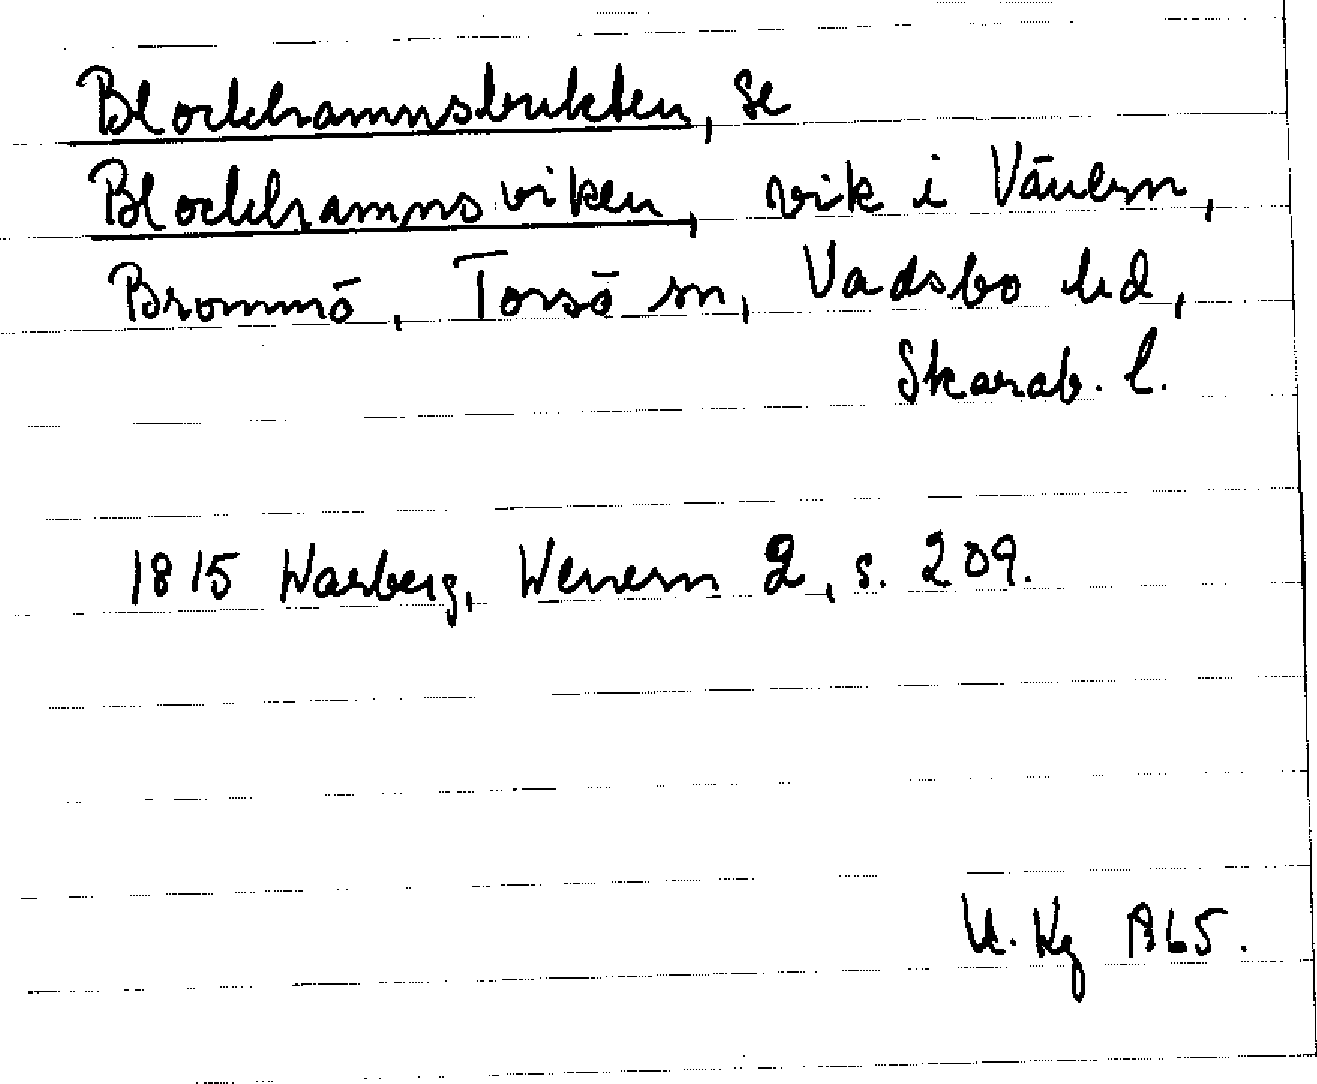 Blockhamnsbukten, se
Blockhamnsviken, vik i Vänern,
Brommö, Torsö sn, Vadsbo hd,
Skarab. l.
1815 Warberg, Wenern 2, s. 209.
K. Kg 1965.